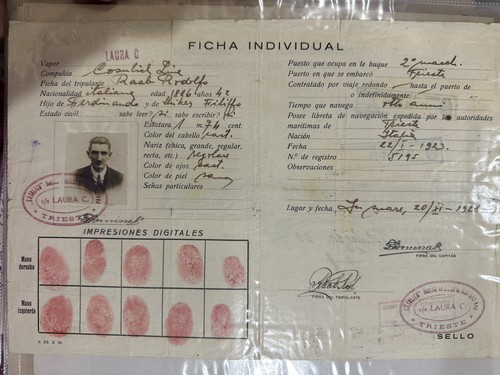 FICHA INDIVIDUAL
Vapor LAURA C
Compañía Cosulich Line
Ficha del tripulante Raab Rodolfo
Nacionalidad italiana edad 1886 años 42
Hijo de Ferdinando y de
Estado civil sabe leer? si sabe escribir? si
Estatura 1 m. 74 cent.
Color del cabello cast.
Nariz (chica, grande, regular,
recta, etc.) regolare
Color de ojos cast.
Color de piel
Señas particulares
Puesto que ocupa en el buque 2º macch.
Puerto en que se embarcó Trieste
Contratado por viaje redondo hasta el puerto de
o indefinidamente.
Tiempo que navega otto anni
Posee libreta de navegación expedida por las autoridades
marítimas de Trieste
Nacido Italia
Fecha 22/I - 192
Nº de registro 5195
Observaciones
Lugar y fecha, In mare, 20/XI - 192
FIRMA DEL CAPITÁN
FIRMA DEL TRIPULANTE
SELLO
LAURA C.
TRIESTE
IMPRESIONES DIGITALES
Mano
derecha
Mano
izquierda
LAURA C.
TRIESTE